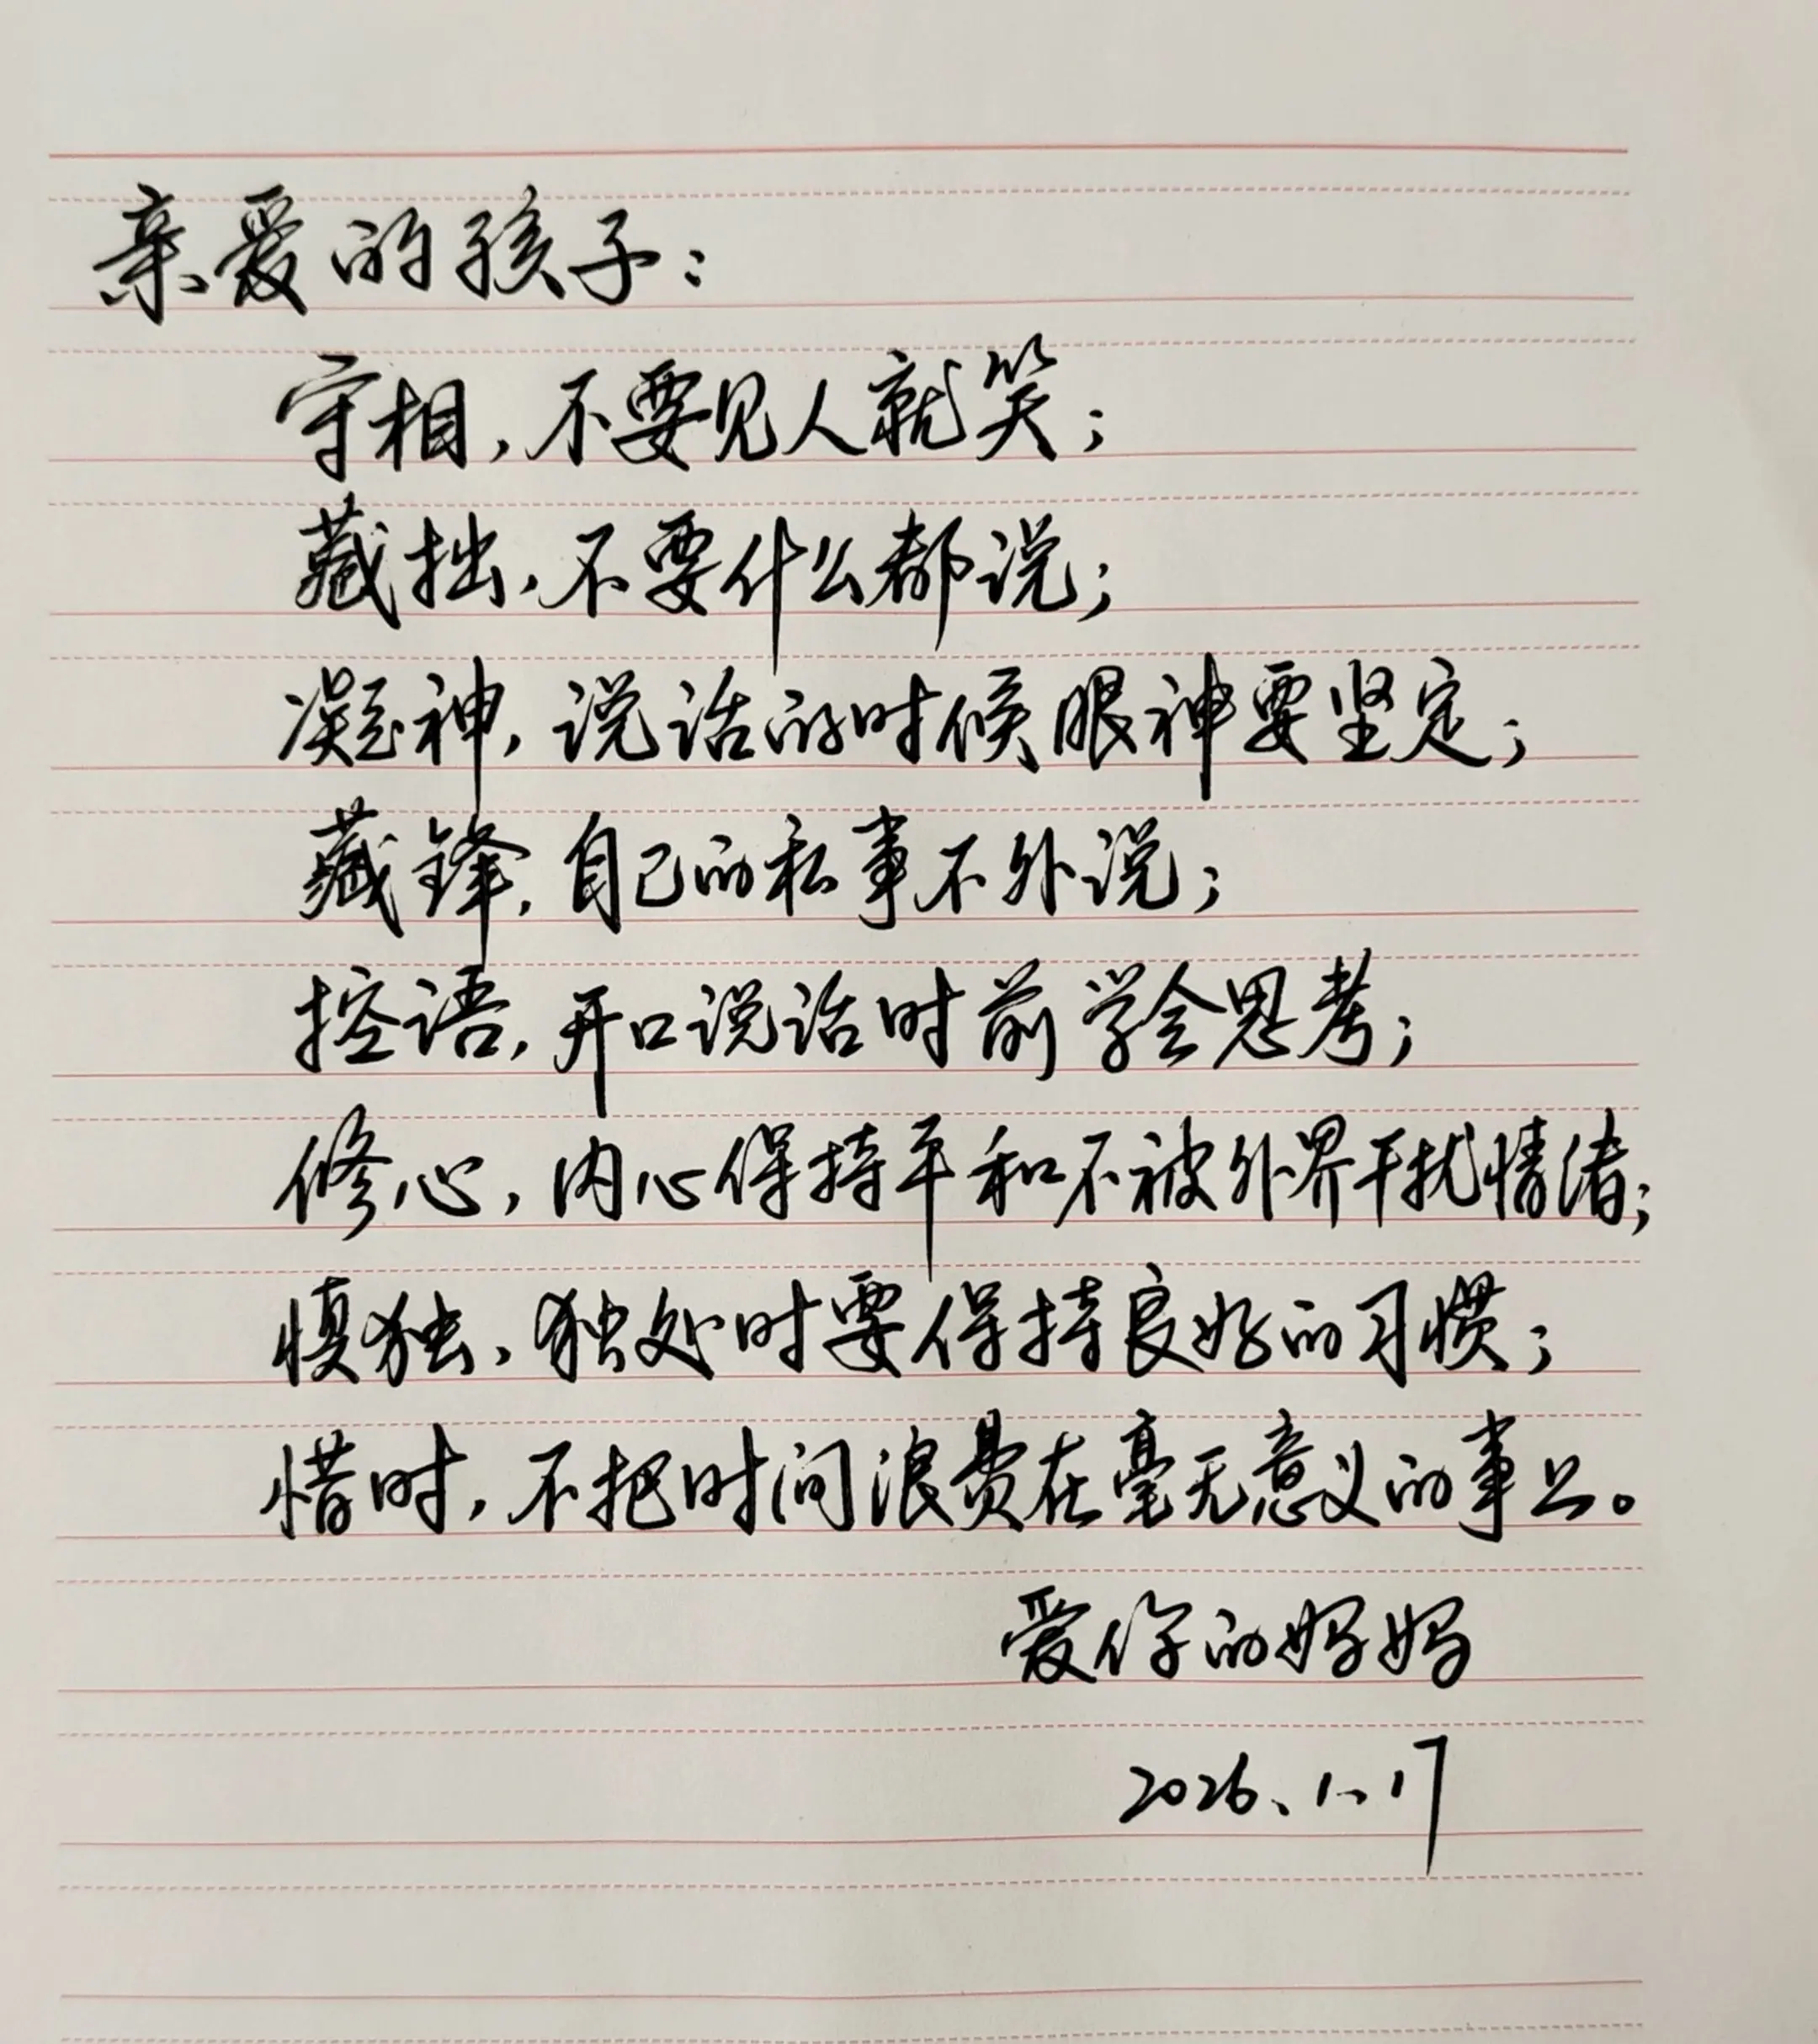 亲爱的孩子：
守相，不要见人就笑；
藏拙，不要什么都说；
凝神，说话的时候眼神要坚定；
藏锋，自己的私事不外说；
控语，开口说话时前学会思考；
修心，内心保持平和不被外界干扰情绪；
慎独，独处时要保持良好的习惯；
惜时，不把时间浪费在毫无意义的事上。
爱你的妈妈
2026、1、17